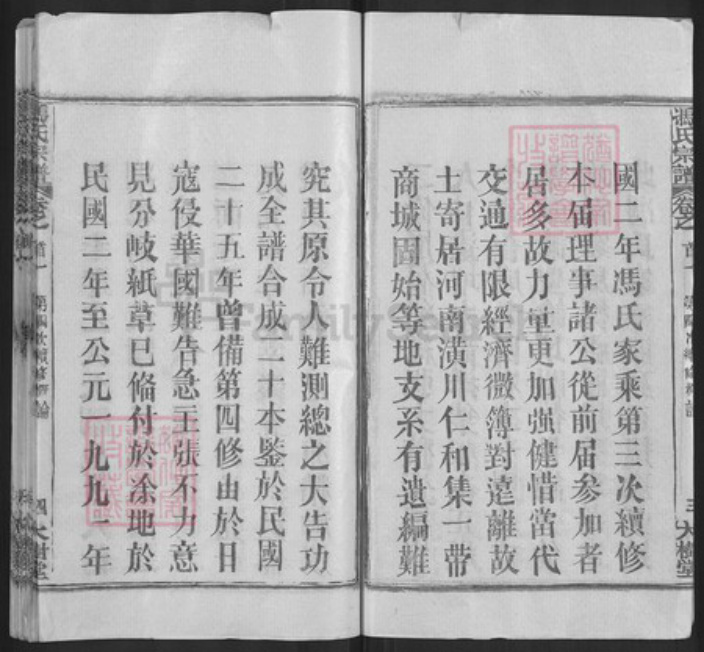 馮氏宗譜
卷之首
三
大樹堂
國二年馮氏家乘第三次續修
本届理事諸公從前届參加者
居多故力量更加强健惜當代
交通有限經濟微簿對遠離故
土寄居河南潢川仁和集一帶
商城固始等地支系有遺編難
究其原令人難測總之大告功
成全譜合成二十本鑒於民國
二十五年曾備第四修由於日
寇侵華國難告急主張不力意
見分岐紙草已偹付於涂地於
民國二年至公元一九九一年
馮氏宗譜
卷之首
第四次續修譜論
四
大樹堂
FamilySearch